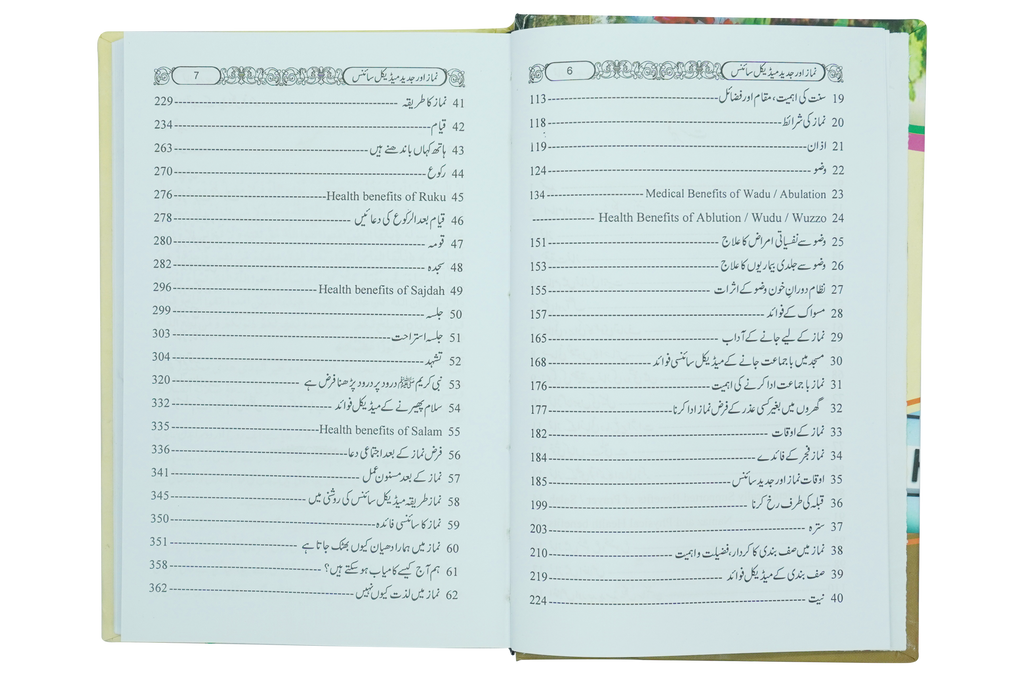 نماز اور جدید میڈیکل سائنس 6
19 سنت کی اہمیت، مقام اور فضائل ---------- 113
20 نماز کی شرائط ---------- 118
21 اذان ---------- 119
22 وضو ---------- 124
23 Medical Benefits of Wadu / Abulation ---------- 134
24 Health Benefits of Ablution / Wudu / Wuzzo ----------
25 وضو سے نفسیاتی امراض کا علاج ---------- 151
26 وضو سے جلدی بیماریوں کا علاج ---------- 153
27 نظام دورانِ خون وضو کے اثرات ---------- 155
28 مسواک کے فوائد ---------- 157
29 نماز کے لیے جانے کے آداب ---------- 165
30 مسجد میں باجماعت جانے کے میڈیکل سائنسی فوائد ---------- 168
31 نماز باجماعت ادا کرنے کی اہمیت ---------- 176
32 گھروں میں بغیر کسی عذر کے فرض نماز ادا کرنا ---------- 177
33 نماز کے اوقات ---------- 182
34 نماز فجر کے فائدے ---------- 184
35 اوقات نماز اور جدید سائنس ---------- 185
36 قبلہ کی طرف رخ کرنا ---------- 199
37 سترہ ---------- 203
38 نماز میں صف بندی کا کردار، فضیلت و اہمیت ---------- 210
39 صف بندی کے میڈیکل فوائد ---------- 219
40 نیت ---------- 224
نماز اور جدید میڈیکل سائنس 7
41 نماز کا طریقہ ---------- 229
42 قیام ---------- 234
43 ہاتھ کہاں باندھنے ہیں ---------- 263
44 رکوع ---------- 270
45 Health benefits of Ruku ---------- 276
46 قیام بعد الرکوع کی دعائیں ---------- 278
47 قومہ ---------- 280
48 سجدہ ---------- 282
49 Health benefits of Sajdah ---------- 296
50 جلسہ ---------- 299
51 جلسہ استراحت ---------- 303
52 تشہد ---------- 304
53 نبی کریم ﷺ درود پر درود پڑھنا فرض ہے ---------- 320
54 سلام پھیرنے کے میڈیکل فوائد ---------- 332
55 Health benefits of Salam ---------- 335
56 فرض نماز کے بعد اجتماعی دعا ---------- 336
57 نماز کے بعد مسنون عمل ---------- 341
58 نماز طریقہ میڈیکل سائنس کی روشنی میں ---------- 345
59 نماز کا سائنسی فائدہ ---------- 350
60 نماز میں ہمارا دھیان کیوں بھٹک جاتا ہے ---------- 351
61 ہم آج کیسے کامیاب ہو سکتے ہیں؟ ---------- 358
62 نماز میں لذت کیوں نہیں ---------- 362